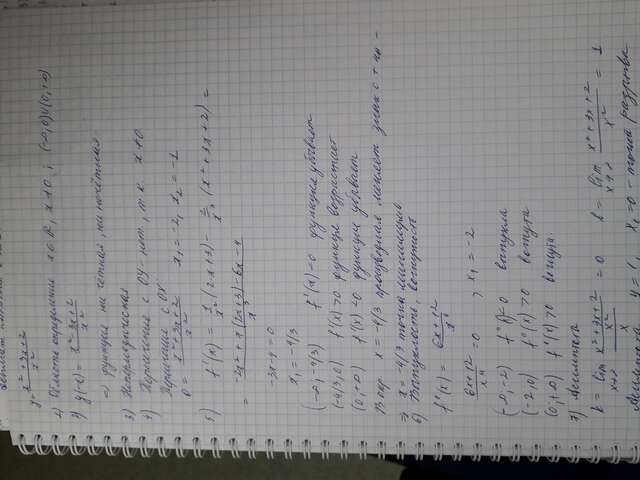 y = x²+3x+2 / x²
1) Область определения x∈R, x≠0, (-∞,0)∪(0,+∞)
2) y(-x) = x²-3x+2 / x²
⇒ функция ни чётная, ни нечётная
3) Непериодическая
4) Пересечение с OY - нет, т.к. x≠0
Пересечение с OX
0 = x²+3x+2 / x² x₁=-2, x₂=-1
5) f'(x) = 1/x² (2x+3) - 2/x³ (x²+3x+2) =
= -2x²+x(2x+3)-6x-4 / x³
-3x-4=0
x₁=-4/3
(-∞,-4/3) f'(x)<0 функция убывает
(-4/3,0) f'(x)>0 функция возрастает
(0,+∞) f'(x)<0 функция убывает
В окр. x=-4/3 производная меняет знак с + на -
⇒ x=-4/3 точка
6) Выпуклость, вогнутость
f''(x) = 6x+12 / x⁴
6x+12 / x⁴ = 0 ; x₁=-2
(-∞,-2) f''(x)<0 выпукла
(-2,0) f''(x)>0 вогнута
(0,+∞) f''(x)>0 вогнута.
7) Асимптота
k = lim x²+3x+2 / x² / x = 0 b = lim x²+3x+2 / x² = 1
y=1, x₁=0 - точка разрыва